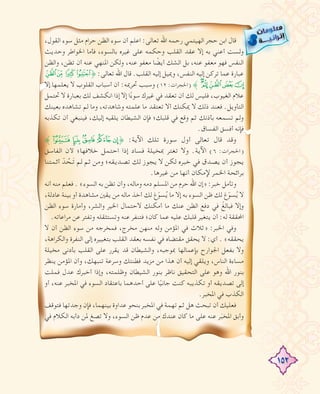 معلومات
إثرائية
قال ابن حجر الهيتمي رحمه الله تعالى: اعلم أن سوء الظن حرام مثل سوء القول،
ولست أعني به إلا عقد القلب وحكمه على غيره بالسوء، فأما الخواطر وحديث
النفس فهو معفو عنه، بل الشك أيضًا معفو عنه، ولكن المنهي عنه أن تظن، والظن
عبارة عما تركن إليه النفس، ويميل إليه القلب. قال الله تعالى: ﴿ ٱجْتَنِبُوا۟ كَثِيرًا مِّنَ ٱلظَّنِّ
إِنَّ بَعْضَ ٱلظَّنِّ إِثْمٌ ﴾ (الحجرات: ١٢) وسبب تحريمه: أن أسباب القلوب لا يعلمها إلا
علام الغيوب، فليس لك أن تعتقد في غيرك سوءًا إلا إذا انكشف لك بعبارة لا تحتمل
التأويل. فعند ذلك لا يمكنك ألا تعتقد ما علمته وشاهدته، وما لم تشاهده بعينك
ولم تسمعه بأذنك ثم وقع في قلبك؛ فإن الشيطان يلقيه إليك، فينبغي أن تكذبه
فإنه أفسق الفساق.
وقد قال تعالى أول سورة تلك الآية: ﴿ إِن جَآءَكُمْ فَاسِقٌۢ بِنَبَإٍ فَتَبَيَّنُوٓا۟ ﴾
(الحجرات: ٦) الآية. ولا تغتر بمخيلة فساد إذا احتمل خلافها؛ لأن الفاسق
يجوز أن يصدق في خبره لكن لا يجوز لك تصديقه؛ ومن ثم لم تَحُدّ أئمتنا
برائحة الخمر لإمكان أنها من غيرها.
وتأمل خبر: «إن الله حرم من المسلم دمه وماله، وأن تظن به السوء». فعلم منه أنه
لا يُسوِّغ لك ظن السوء به إلا ما يُسوِّغ لك أخذ ماله من يقين مشاهدة أو بينة عادلة،
وإلا فبالغ في دفع الظن عنك ما أمكنك لاحتمال الخير والشر، وأمارة سوء الظن
المحققة له: أن يتغير قلبك عليه عما كان؛ فتنفر عنه وتستثقله وتفتر عن مراعاته.
وفي الخبر: «ثلاث في المؤمن وله منهن مخرج، فمخرجه من سوء الظن أن لا
يحققه». أي: لا يحقق مقتضاه في نفسه بعقد القلب بتغييره إلى النفرة والكراهة،
ولا بفعل الجوارح بإعمالها بموجبه، والشيطان قد يقرر على القلب بأدنى مخيلة
مساءة الناس، ويلقي إليه أن هذا من مزيد فطنتك وسرعة تنبهك، وأن المؤمن ينظر
بنور الله وهو على التحقيق ناظر بنور الشيطان وظلمته، وإذا أخبرك عدل فملت
إلى تصديقه أو تكذيبه كنت جانيًا على أحدهما باعتقاد السوء في المخبر عنه، أو
الكذب في المخبر.
فعليك أن تبحث هل ثم تهمة في المخبر بنحو عداوة بينهما، فإن وجدتها فتوقف
وأبق المخبر عنه على ما كان عندك من عدم ظن السوء، ولا تصغ لمن دأبه الكلام في
١٥٢